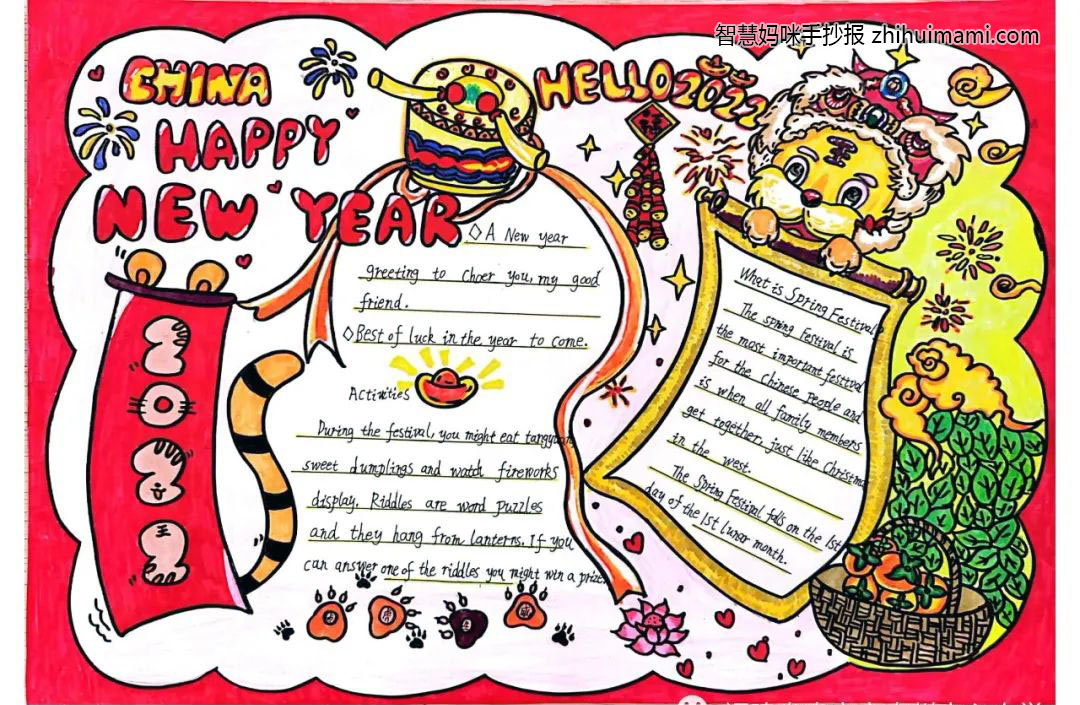 智慧妈咪手抄报 zhihuimami.com
CHINA
HAPPY
NEW YEAR
HELLO 2022
◇A New year
greeting to cheer you, my good
friend.
◇Best of luck in the year to come.
Activities
During the festival, you might eat tangyuan
sweet dumplings and watch fireworks
display. Riddles are word puzzles
and they hang from lanterns. If you
can answer one of the riddles you might win a prize.
What is Spring Festival
The spring Festival is
the most important festival
for the chinese people and
is when all family members
get together, just like Christmas
in the west.
The Spring Festival falls on the 1st
day of the 1st lunar month.
2
0
2
2
王